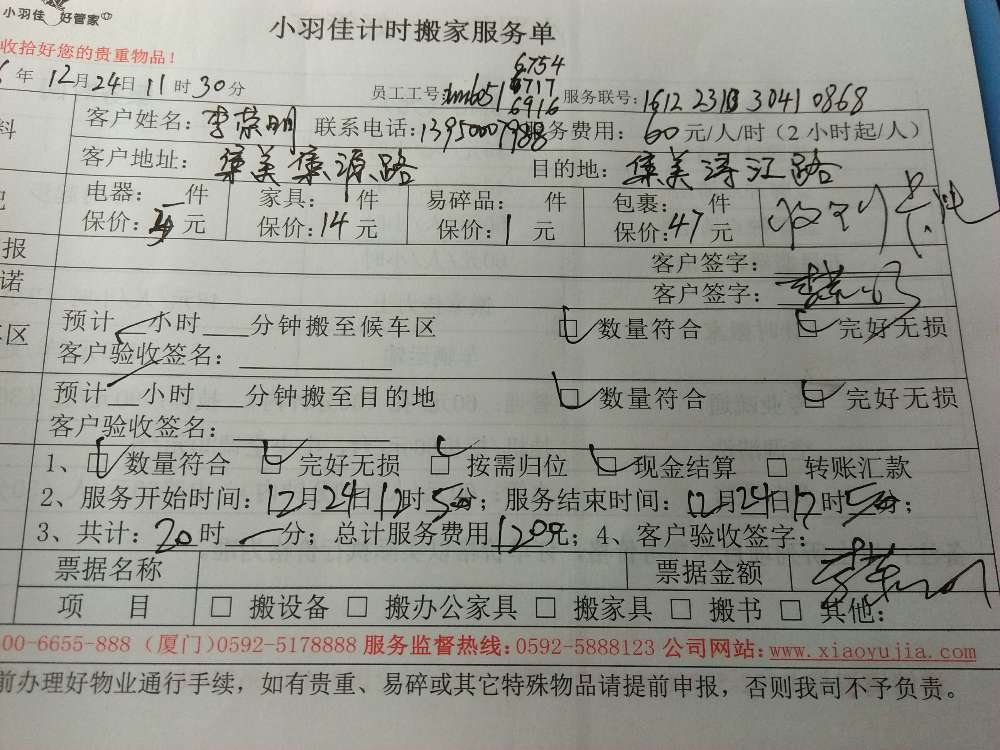 小羽佳 好管家
小羽佳计时搬家服务单
收拾好您的贵重物品!
年12月24日11时30分
6754
员工工号: 6717 服务联号:
6916
料
客户姓名:李荣明 联系电话:13950007988 务费用:60元/人/时(2小时起/人)
客户地址:集美集源路 目的地:集美浔江路
电器: 件 家具: 件 易碎品: 件 包裹: 件
保价: 元 保价:14元 保价:1元 保价:47元
报 客户签字:
诺 客户签字:
车区 预计 小时 分钟搬至候车区 数量符合 完好无损
客户验收签名:
预计 小时 分钟搬至目的地 数量符合 完好无损
客户验收签名:
1、 数量符合 完好无损 按需归位 现金结算 转账汇款
2、服务开始时间:12月24日 时 分;服务结束时间:12月24日 时 分;
3、共计:20时 分;总计服务费用1200元;4、客户验收签字:
票据名称 票据金额
项 目 搬设备 搬办公家具 搬家具 搬书 其他:
00-6655-888(厦门)0592-5178888 服务监督热线:0592-5888123 公司网站:www.xiaoyujia.com
前办理好物业通行手续,如有贵重、易碎或其它特殊物品请提前申报,否则我司不予负责。